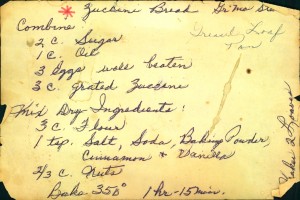 Zuccine Bread Gr'ma Sue
Greased Loaf
Pan
Combine
2 c. Sugar
1 c. Oil
3 Eggs well beaten
3 c. grated Zuccine
Mix Dry Ingredients:
3 c. Flour
1 tsp. Salt, Soda, Baking Powder,
Cinnamon & Vanilla
2/3 c. Nuts
Bake 350° 1 hr - 15 min.
Makes 2 Loaves